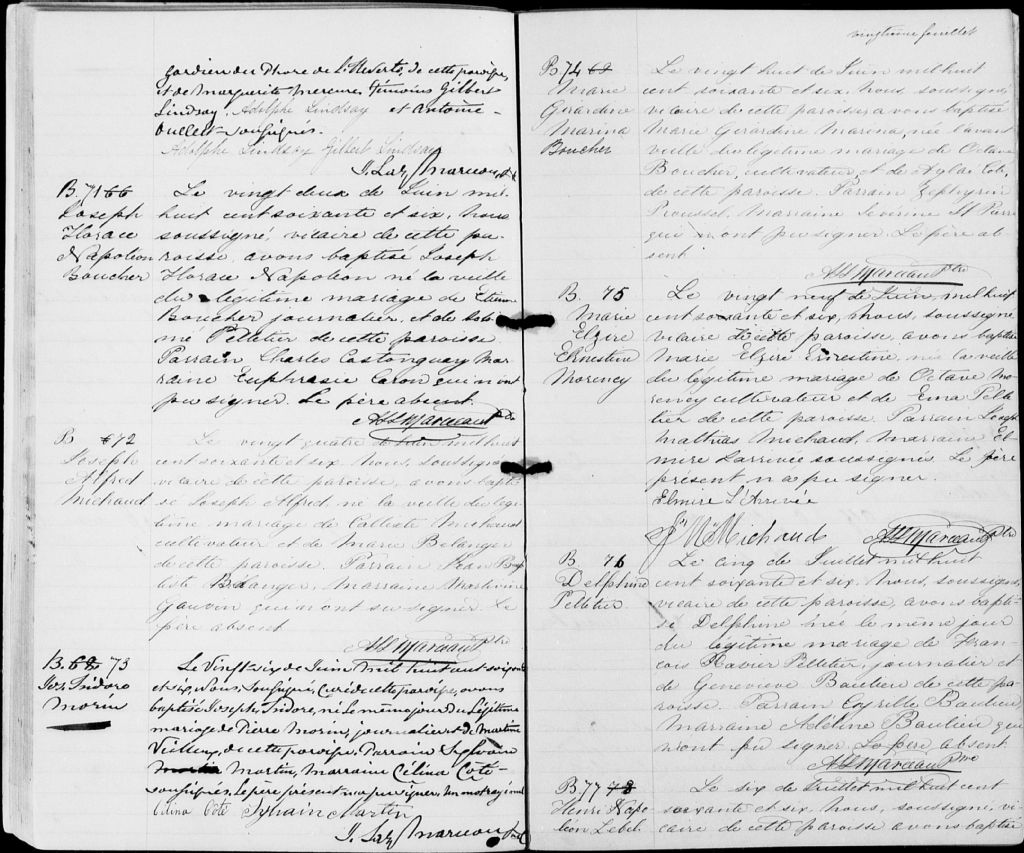 gardien du Phare de l'Ileverte, de cette paroisse,
et de Marguerite Mercure. Témoins Gilbert
Lindsay, Adolphe Lindsay et Antoine
Ouellet soussignés.
Adolphe Lindsay Gilbert Lindsay
J. Laz. Marceau, Ptr
B. 71 66
Joseph
Horace
Napoleon
Boucher
Le vingt deux de Juin mil
huit cent soixante et six, Nous
soussigné, vicaire de cette pa-
roisse avons baptisé Joseph
Horace Napoleon né la veille
du légitime mariage de Etienne
Boucher journalier, et de
Pelletier de cette paroisse.
Parrain Charles Castonguay Mar-
raine Euphrasie Caron qui n ont
pu signer. Le père absent.
Marceau Ptr
B 72
Joseph
Alfred
Michaud
Le vingt quatre de Juin mil huit
cent soixante et six. Nous, soussigné
vicaire de cette paroisse, avons bapti-
sé Joseph Alfred, né la veille du légi-
time mariage de Calixte Michaud
cultivateur et de Marie Belanger
de cette paroisse. Parrain Jean Bap-
tiste Belanger, Marraine
Gauvin qui n ont su signer. Le
père absent
Marceau Ptr
B. 68 73
Jos. Isidore
Morin
Le Vingt six de Juin mil huit cent soixante
et six, Nous, Soussigné, Curé de cette paroisse, avons
baptisé Joseph Isidore, né le même jour du Légitime
mariage de Pierre Morin, journalier et de Martine
de cette paroisse, Parrain Sylvain
Martin, Marraine Célina Coté
soussignés, le père présent n a pu signer,
Célina Coté Sylvain Martin
J. Laz. Marceau, Ptr
vingtième feuillet
B. 74 69
Marie
Girardine
Marina
Boucher
Le vingt huit de Juin mil huit
cent soixante et six, Nous soussigné,
vicaire de cette paroisse, avons baptisé
Marie Girardine Marina, née l avant
veille du légitime mariage de Octave
Boucher, cultivateur, et de Coté,
de cette paroisse. Parrain Zephyrin
Proussel, Marraine Sévérine St Pierre
qui n ont pu signer. Le père ab
sent.
Marceau Ptr
B. 75
Marie
Elzire
Ernestine
Morency
Le vingt neuf de Juin, mil huit
cent soixante et six, Nous, soussigné,
vicaire de cette paroisse, avons baptisé
Marie Elzire Ernestine, née la veille
du légitime mariage de Octave Mo-
rency cultivateur et de Ema Pelle
tier de cette paroisse. Parrain Joseph
Mathias Michaud, Marraine El-
mire Larrivée soussignés. Le père
présent n a pu signer.
Elmire L'Arrivée
Js M. Michaud Marceau Ptr
B. 76
Delphine
Pelletier
Le cinq de Juillet mil huit
cent soixante et six. Nous, soussigné,
vicaire de cette paroisse, avons bapti-
sé Delphine née le même jour
du légitime mariage de Fran
çois Xavier Pelletier, journalier et
de Geneviève Bautieu de cette pa-
roisse. Parrain Cyrille Bautieu,
Marraine Adéline Bautieu qui
n ont pu signer. Le père absent
Marceau Ptre
B. 77 78
Henri Napo
léon Lebel
Le six de Juillet mil huit cent
soixante et six. Nous, soussigné, vi-
caire de cette paroisse avons baptisé